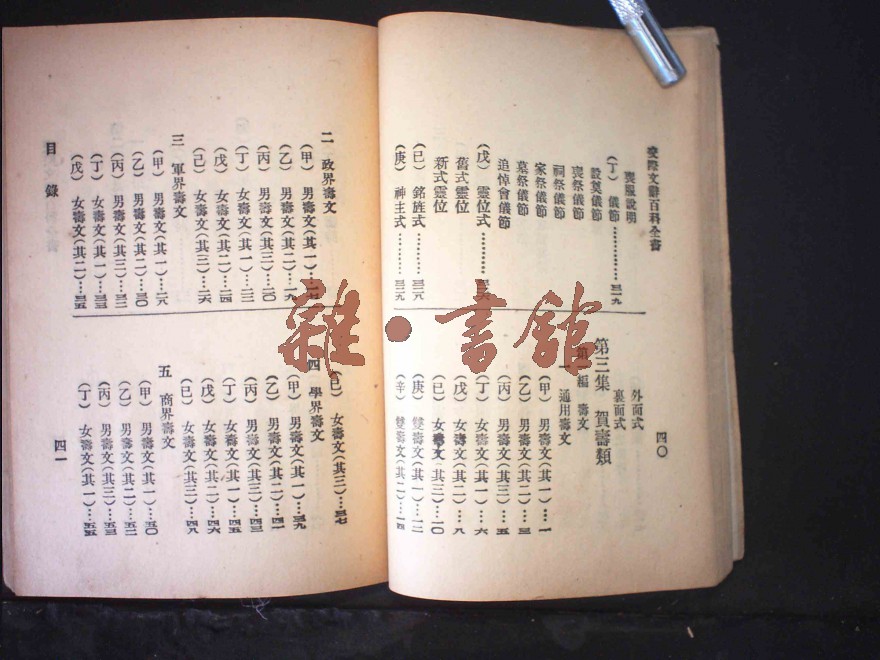 交際文辭百科全書
喪服說明
(丁) 儀節…………三一九
設奠儀節
喪祭儀節
祠祭儀節
家祭儀節
墓祭儀節
追悼會儀節
(戊) 靈位式
舊式靈位
新式靈位
(己) 銘旌式………三二八
(庚) 神主式………三二九
外面式
裏面式
第三集 賀壽類
第一編 壽文
一 通用壽文
(甲) 男壽文(其一)…一
(乙) 男壽文(其二)…三
(丙) 男壽文(其三)…五
(丁) 女壽文(其一)…六
(戊) 女壽文(其二)…八
(己) 女壽文(其三)…一〇
(庚) 雙壽文(其一)…一二
(辛) 雙壽文(其二)…一四
四〇
二 政界壽文
(甲) 男壽文(其一)…一七
(乙) 男壽文(其二)…一九
(丙) 男壽文(其三)…二〇
(丁) 女壽文(其一)…二三
(戊) 女壽文(其二)…二四
(己) 女壽文(其三)…二六
三 軍界壽文
(甲) 男壽文(其一)…二八
(乙) 男壽文(其二)…三〇
(丙) 男壽文(其三)…三二
(丁) 女壽文(其一)…三三
(戊) 女壽文(其二)…三五
目錄
(己) 女壽文(其三)…三七
四 學界壽文
(甲) 男壽文(其一)…三九
(乙) 男壽文(其二)…四一
(丙) 男壽文(其三)…四三
(丁) 女壽文(其一)…四五
(戊) 女壽文(其二)…四六
(己) 女壽文(其三)…四八
五 商界壽文
(甲) 男壽文(其一)…五〇
(乙) 男壽文(其二)…五二
(丙) 男壽文(其三)…五三
(丁) 女壽文(其一)…五五
四一
雜·書館